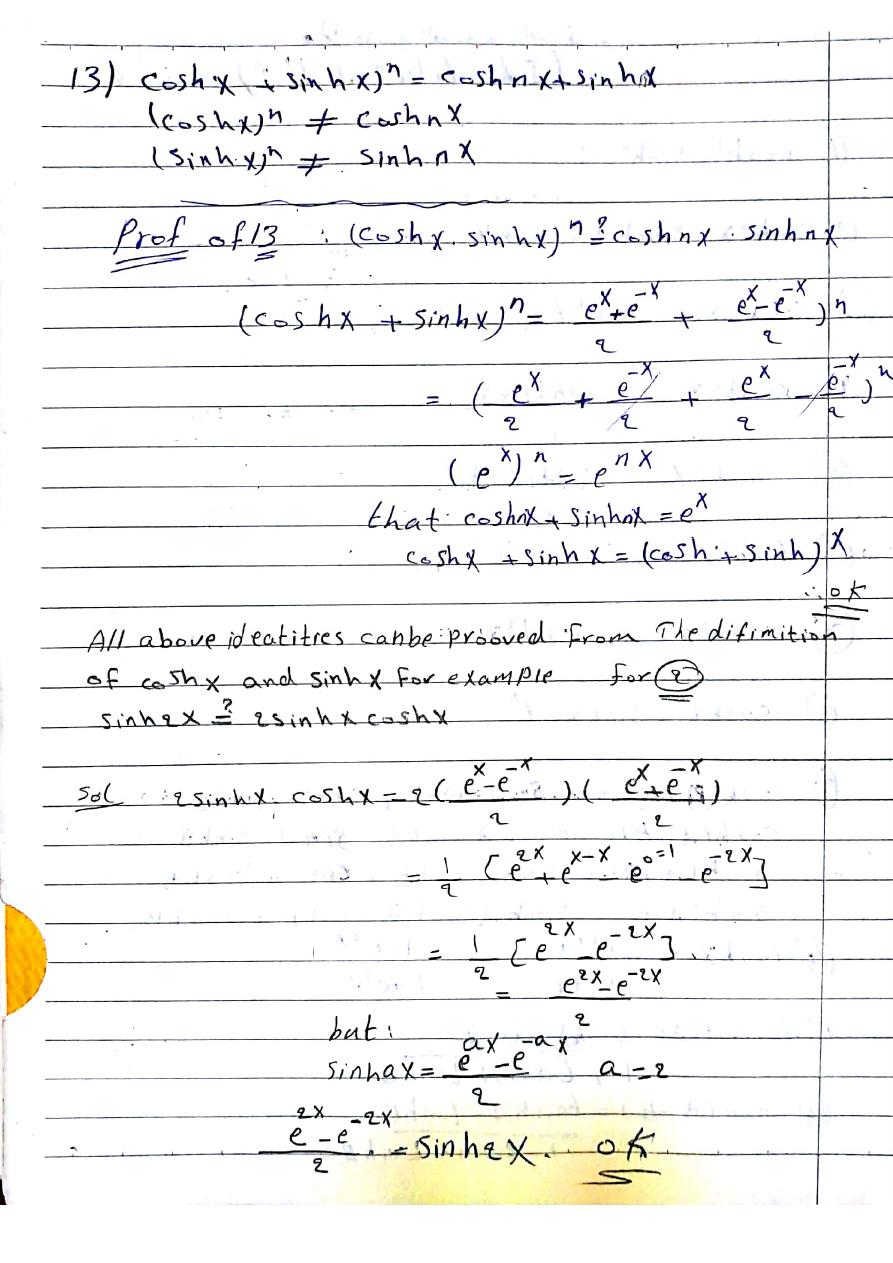 13) coshx + sinhx)ⁿ = coshnx + sinhnx
(coshx)ⁿ ≠ coshnx
(sinhx)ⁿ ≠ sinhnx
Prof of 13 : (coshx . sinhx)ⁿ ≟ coshnx . sinhnx
(coshx + sinhx)ⁿ = (e^x+e^-x)/2 + (e^x-e^-x)/2 )ⁿ
= ( e^x/2 + e^-x/2 + e^x/2 - e^-x/2 )ⁿ
(e^x)ⁿ = e^nx
that coshnx + sinhnx = e^x
coshx + sinhx = (cosh + sinh)^x
∴ ok
All above ideatitres canbe prooved From The difimition
of coshx and sinhx For example for (2)
sinh2x ≟ 2sinhx coshx
Sol 2sinhx . coshx = 2( (e^x-e^-x)/2 ) . ( (e^x+e^-x)/2 )
= 1/2 [e^2x + e^x-x - e^0=1 - e^-2x]
= 1/2 [e^2x - e^-2x]
= (e^2x - e^-2x)/2
but :
sinhax = (e^ax - e^-ax)/2 a = 2
(e^2x - e^-2x)/2 = sinh2x . ok